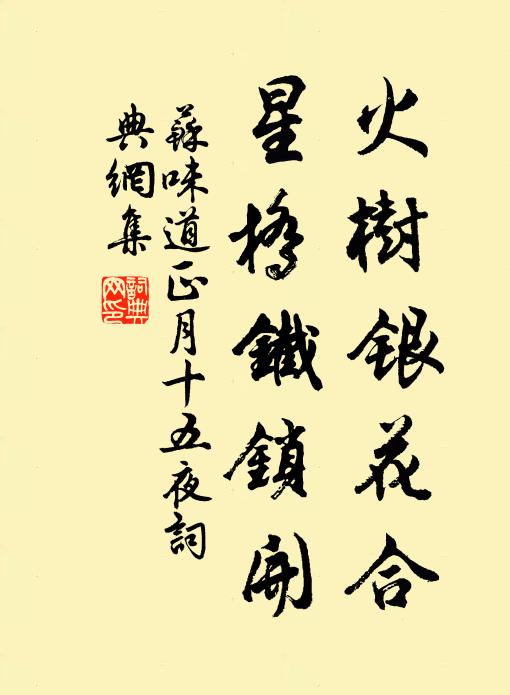 火樹銀花合
星橋鐵鎖開
蘇味道正月十五夜詞
典網集
詞典
网印